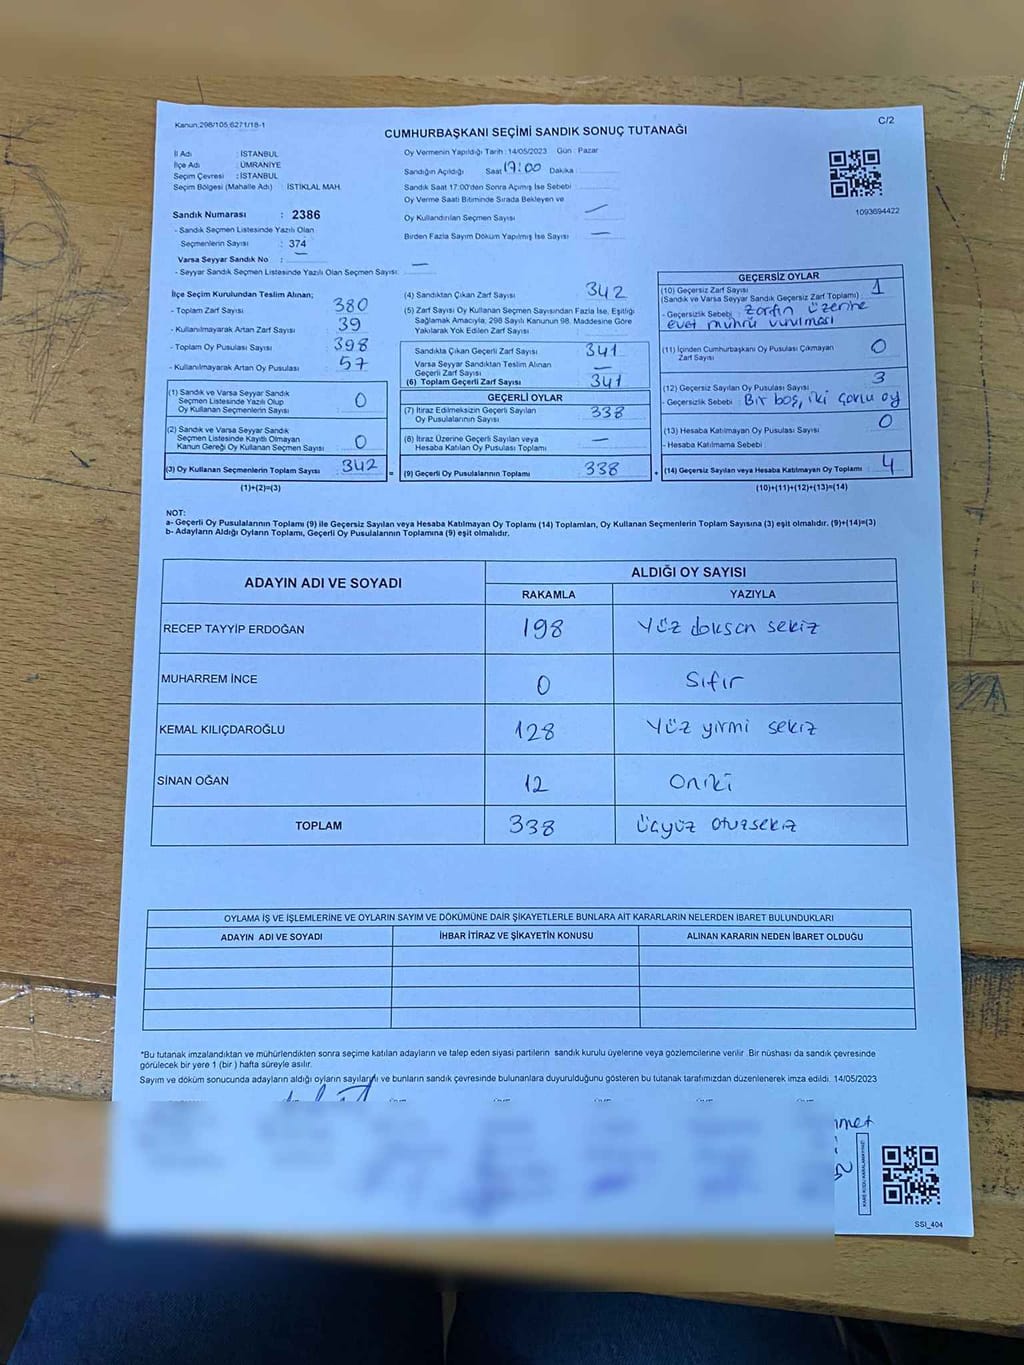 Kanun:298/105 6271/18-1
C/2
CUMHURBAŞKANI SEÇİMİ SANDIK SONUÇ TUTANAĞI
İl Adı : İSTANBUL
İlçe Adı : ÜMRANİYE
Seçim Çevresi : İSTANBUL
Seçim Bölgesi (Mahalle Adı) : İSTİKLAL MAH.
Sandık Numarası : 2386
- Sandık Seçmen Listesinde Yazılı Olan
Seçmenlerin Sayısı : 374
Varsa Seyyar Sandık No : —
- Seyyar Sandık Seçmen Listesinde Yazılı Olan Seçmen Sayısı: —
Oy Vermenin Yapıldığı Tarih : 14/05/2023 Gün : Pazar
Sandığın Açıldığı Saat 17:00 Dakika
Sandık Saat 17:00'den Sonra Açımış İse Sebebi
Oy Verme Saati Bitiminde Sırada Bekleyen ve
Oy Kullandırılan Seçmen Sayısı —
Birden Fazla Sayım Döküm Yapılmış İse Sayısı —
1093694422
İlçe Seçim Kurulundan Teslim Alınan;
- Toplam Zarf Sayısı 380
- Kullanılmayarak Artan Zarf Sayısı 39
- Toplam Oy Pusulası Sayısı 398
- Kullanılmayarak Artan Oy Pusulası 57
(1) Sandık ve Varsa Seyyar Sandık
Seçmen Listesinde Yazılı Olup
Oy Kullanan Seçmenlerin Sayısı 0
(2) Sandık ve Varsa Seyyar Sandık
Seçmen Listesinde Kayıtlı Olmayan
Kanun Gereği Oy Kullanan Seçmen Sayısı 0
(3) Oy Kullanan Seçmenlerin Toplam Sayısı 342
(1)+(2)=(3)
=
(4) Sandıktan Çıkan Zarf Sayısı 342
(5) Zarf Sayısı Oy Kullanan Seçmen Sayısından Fazla İse, Eşitliği
Sağlamak Amacıyla; 298 Sayılı Kanunun 98. Maddesine Göre
Yakılarak Yok Edilen Zarf Sayısı
Sandıkta Çıkan Geçerli Zarf Sayısı 341
Varsa Seyyar Sandıktan Teslim Alınan
Geçerli Zarf Sayısı —
(6) Toplam Geçerli Zarf Sayısı 341
GEÇERLİ OYLAR
(7) İtiraz Edilmeksizin Geçerli Sayılan
Oy Pusulalarının Sayısı 338
(8) İtiraz Üzerine Geçerli Sayılan veya
Hesaba Katılan Oy Pusulası Toplamı —
(9) Geçerli Oy Pusulalarının Toplamı 338
+
GEÇERSİZ OYLAR
(10) Geçersiz Zarf Sayısı 1
(Sandık ve Varsa Seyyar Sandık Geçersiz Zarf Toplamı)
- Geçersizlik Sebebi : Zarfın üzerine
evet mührü vurulması
(11) İçinden Cumhurbaşkanı Oy Pusulası Çıkmayan
Zarf Sayısı 0
(12) Geçersiz Sayılan Oy Pusulası Sayısı 3
- Geçersizlik Sebebi : Bir boş, iki çoklu oy
(13) Hesaba Katılmayan Oy Pusulası Sayısı 0
- Hesaba Katılmama Sebebi
(14) Geçersiz Sayılan veya Hesaba Katılmayan Oy Toplamı 4
(10)+(11)+(12)+(13)=(14)
NOT:
a- Geçerli Oy Pusulalarının Toplamı (9) ile Geçersiz Sayılan veya Hesaba Katılmayan Oy Toplamı (14) Toplamları, Oy Kullanan Seçmenlerin Toplam Sayısına (3) eşit olmalıdır. (9)+(14)=(3)
b- Adayların Aldığı Oyların Toplamı, Geçerli Oy Pusulalarının Toplamına (9) eşit olmalıdır.
ADAYIN ADI VE SOYADI
ALDIĞI OY SAYISI
RAKAMLA YAZIYLA
RECEP TAYYİP ERDOĞAN 198 Yüz doksan sekiz
MUHARREM İNCE 0 Sıfır
KEMAL KILIÇDAROĞLU 128 Yüz yirmi sekiz
SİNAN OĞAN 12 Oniki
TOPLAM 338 Üçyüz otuzsekiz
OYLAMA İŞ VE İŞLEMLERİNE VE OYLARIN SAYIM VE DÖKÜMÜNE DAİR ŞİKAYETLERLE BUNLARA AİT KARARLARIN NELERDEN İBARET BULUNDUKLARI
ADAYIN ADI VE SOYADI İHBAR İTİRAZ VE ŞİKAYETİN KONUSU ALINAN KARARIN NEDEN İBARET OLDUĞU
*Bu tutanak imzalandıktan ve mühürlendikten sonra seçime katılan adayların ve talep eden siyasi partilerin sandık kurulu üyelerine veya gözlemcilerine verilir .Bir nüshası da sandık çevresinde
görülecek bir yere 1 (bir ) hafta süreyle asılır.
Sayım ve döküm sonucunda adayların aldığı oyların sayıları ve bunların sandık çevresinde bulunanlara duyurulduğunu gösteren bu tutanak tarafımızdan düzenlenerek imza edildi. 14/05/2023
SSI_404